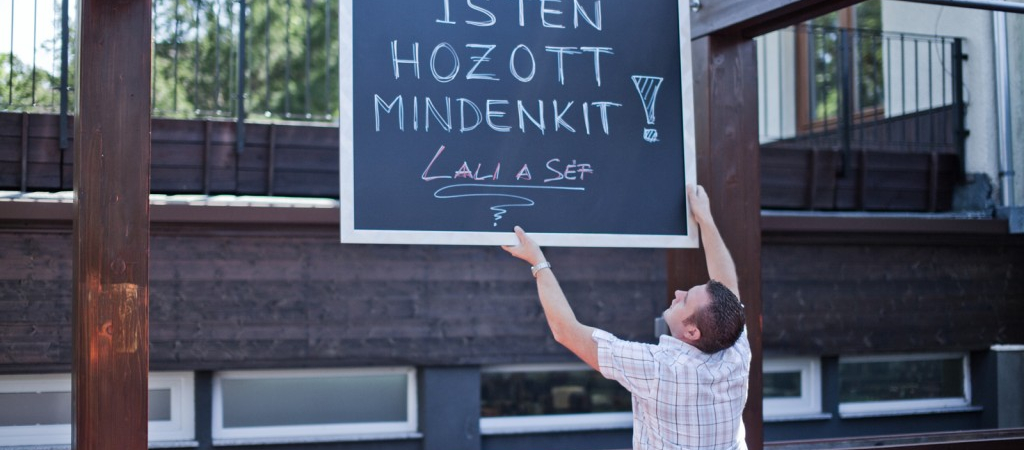 ISTEN
HOZOTT
MINDENKIT!
LALI A SÉF